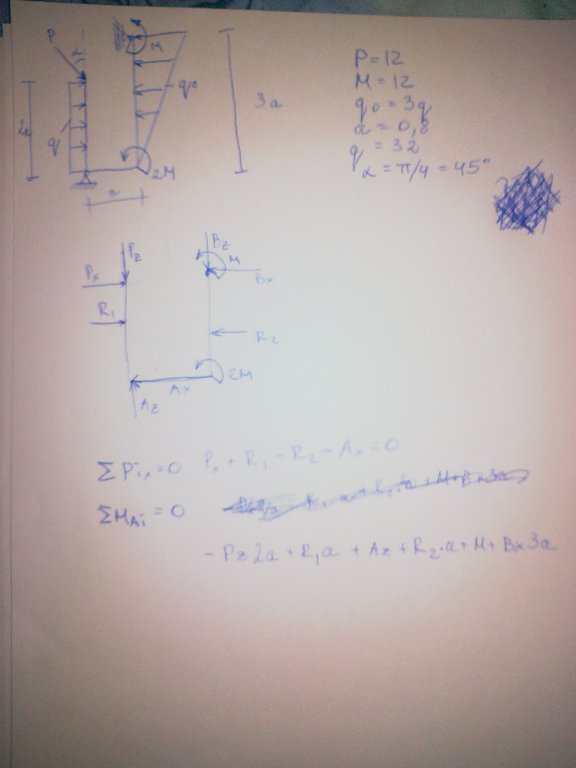 P
M
q0
3a
2a
q
2M
a
P = 12
M = 12
q0 = 3q
a = 0,8
q = 32
α = π/4 = 45°
Pz
Px
R1
Bz
M
Bx
R2
2M
Ax
Az
ΣPix=0 Px + R1 - R2 - Ax = 0
ΣMAi = 0
- Pz 2a + R1a + Az + R2·a + M + Bx 3a